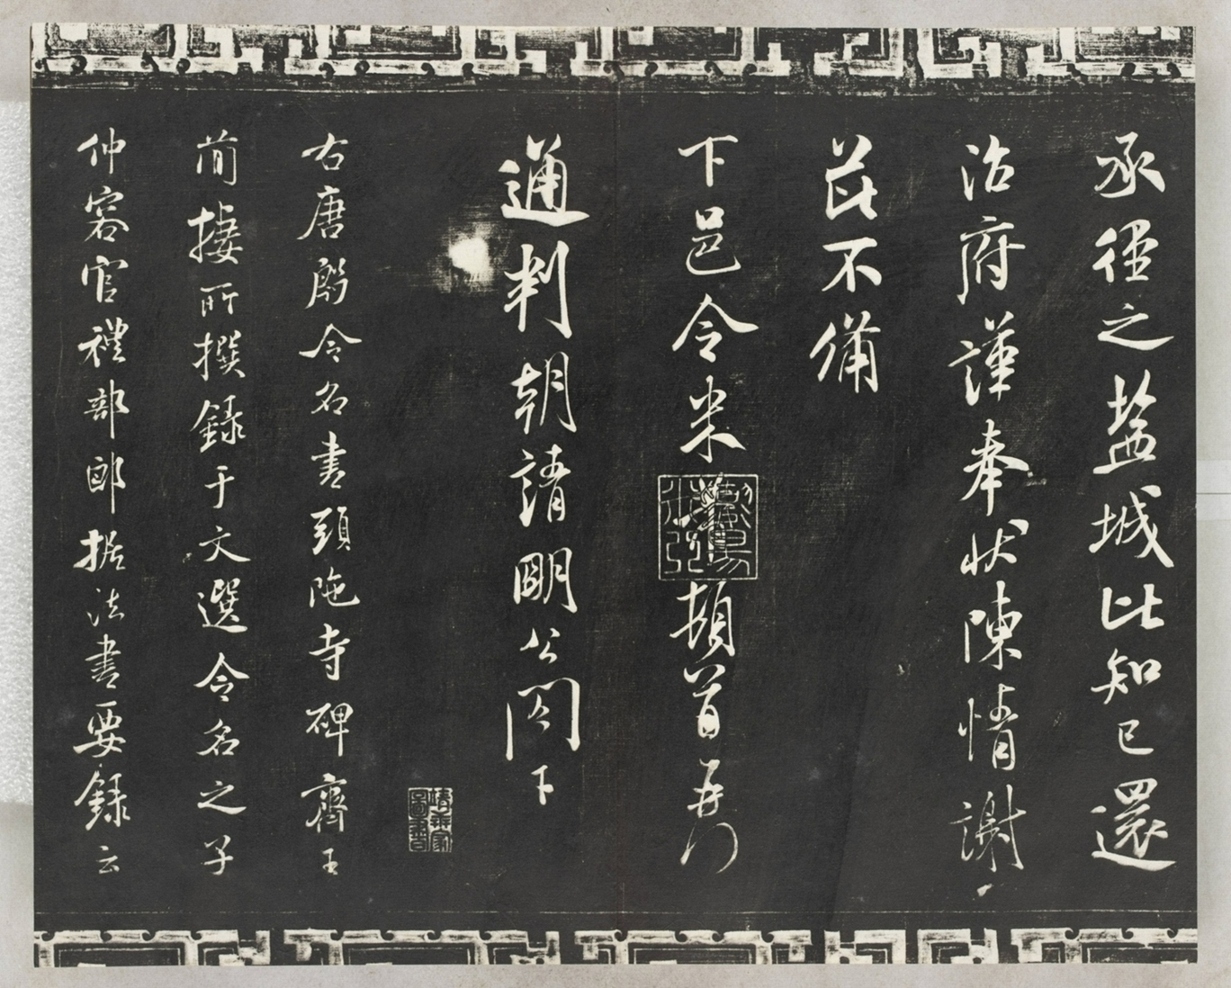 承徑之盐城比知已還
治府謹奉狀陳情謝
芘不備
下邑令米芾頓首再拜
通判朝請明公閣下
右唐殷令名書頭陁寺碑齊王
簡棲所撰録于文選令名之子
仲容官禮部郎据法書要録云